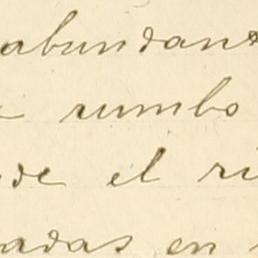 abundant
rumbo
de el rí
adas en